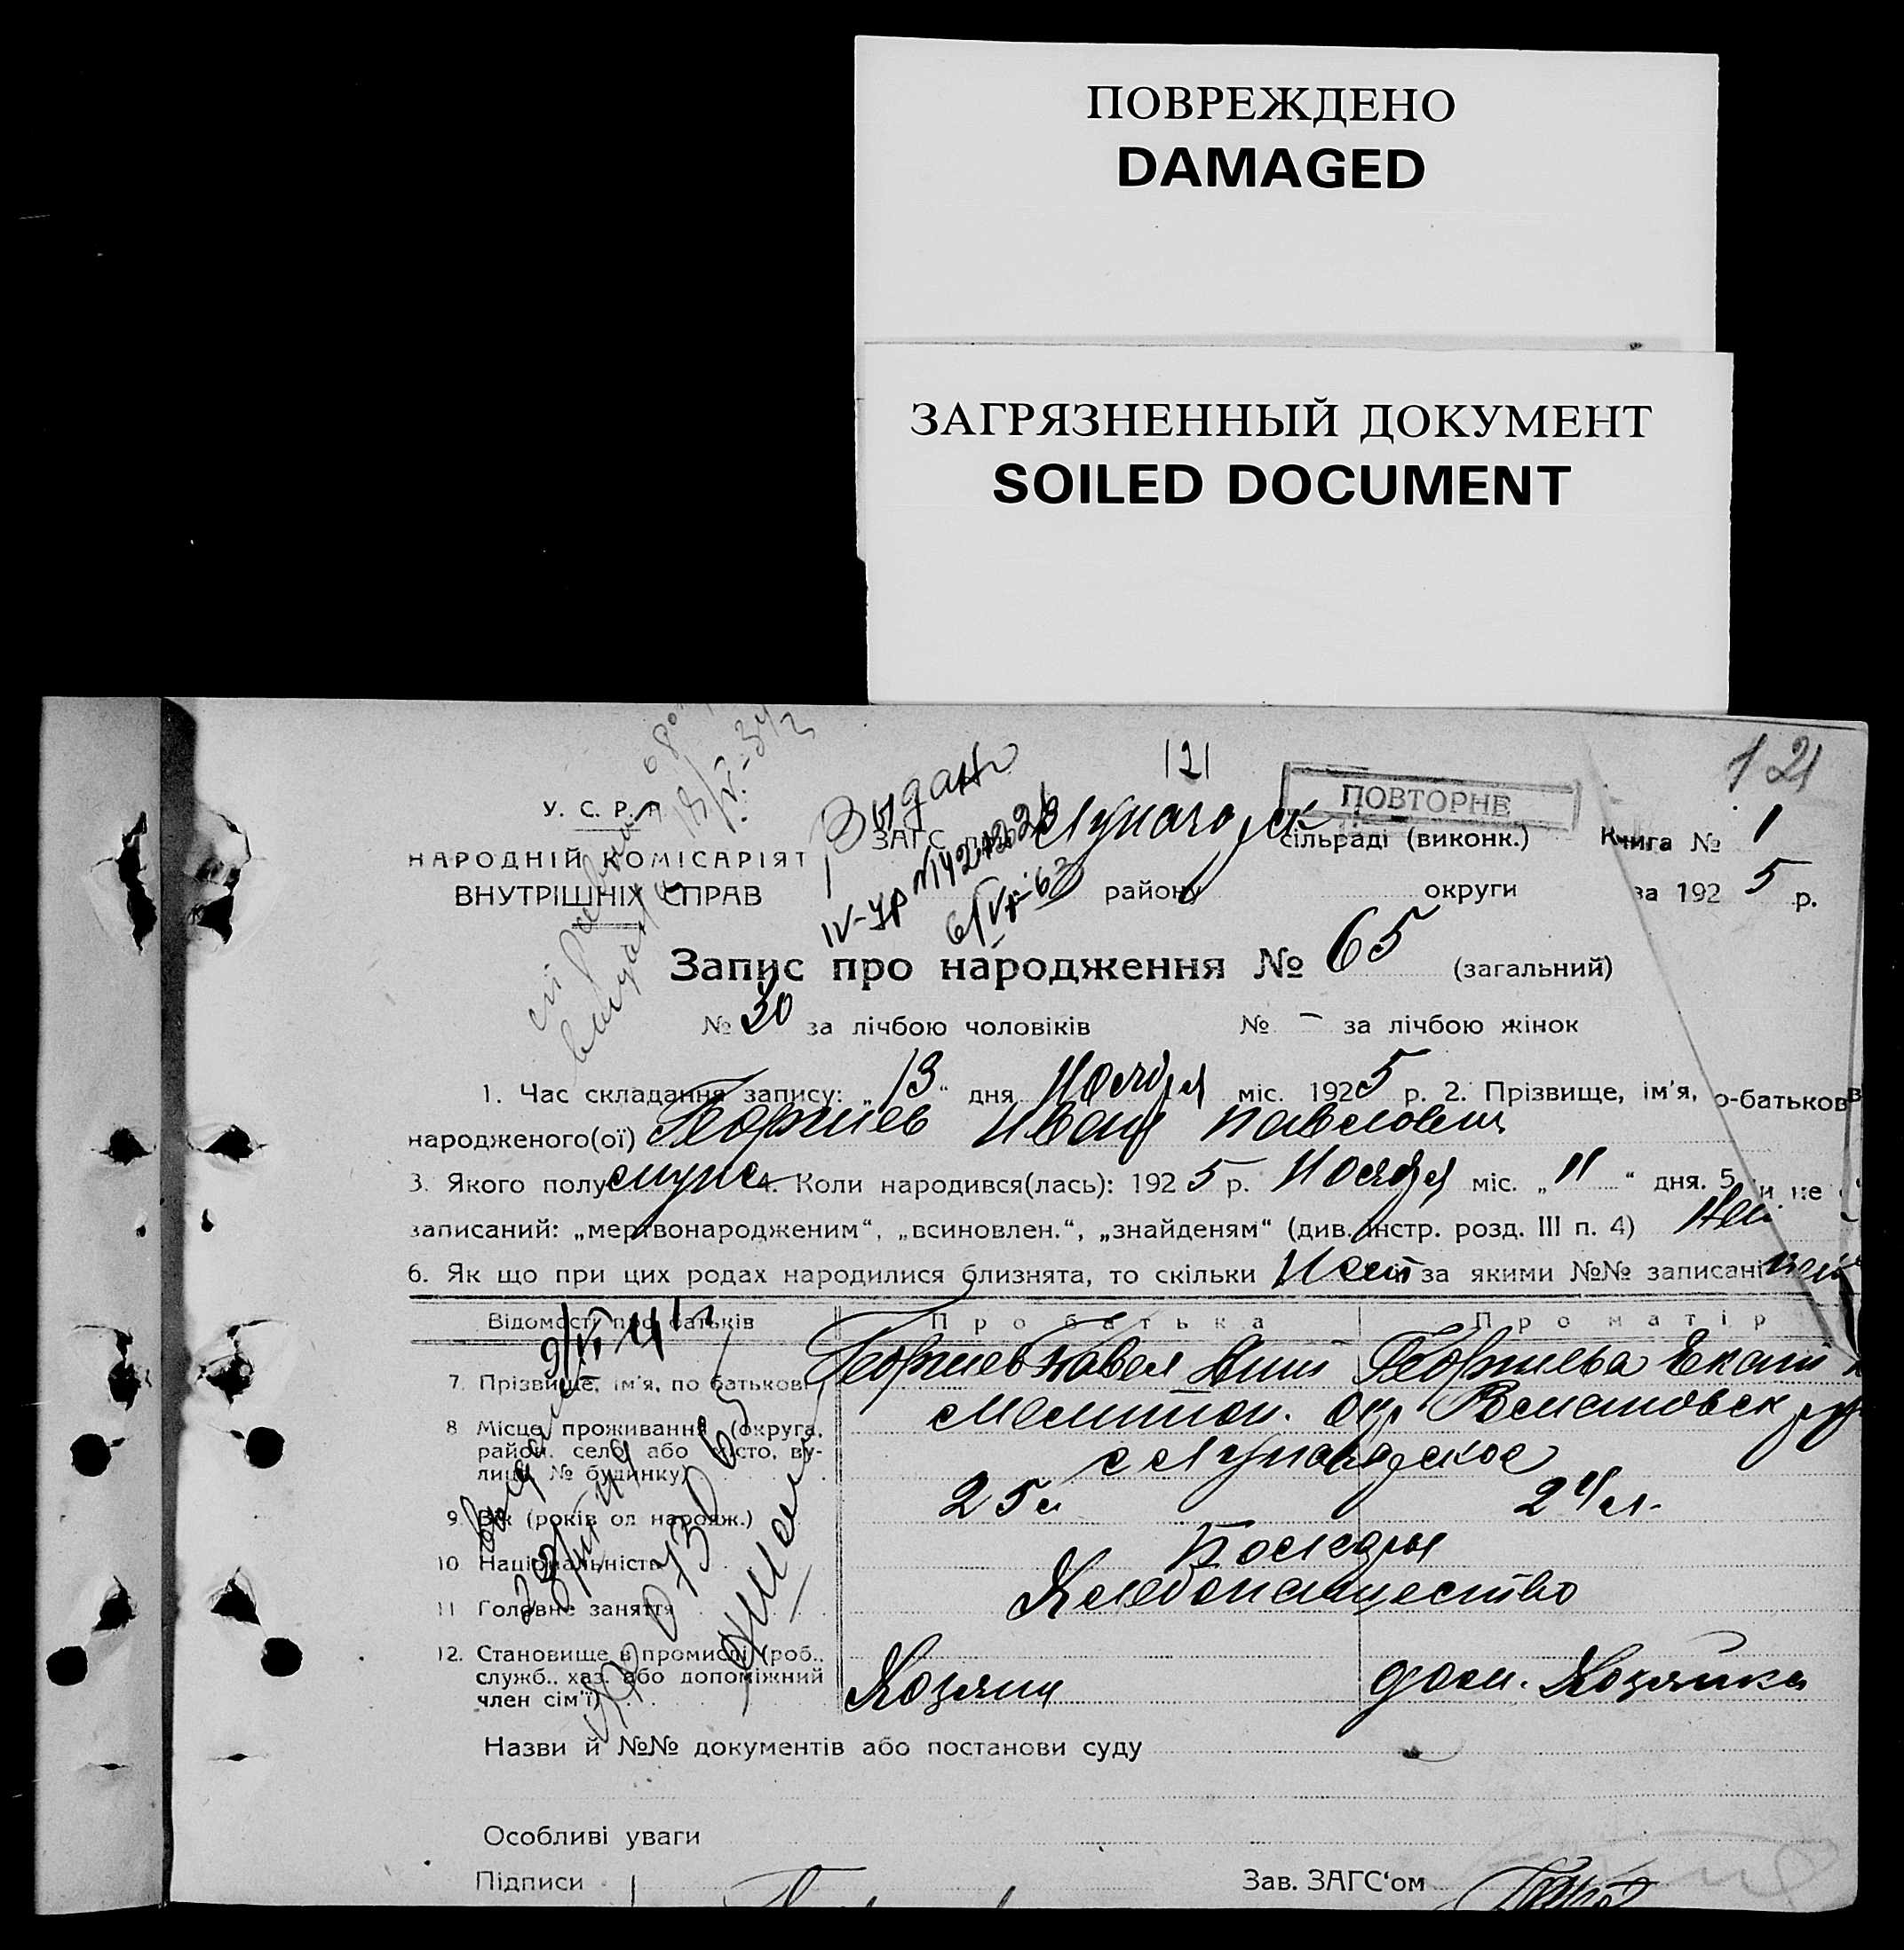 ПОВРЕЖДЕНО
DAMAGED
ЗАГРЯЗНЕННЫЙ ДОКУМЕНТ
SOILED DOCUMENT
121
121
ПОВТОРНЕ
У. С. Р. Р.
НАРОДНІЙ КОМІСАРІЯТ
ВНУТРІШНІХ СПРАВ
Выдано
ЗАГС сільраді (виконк.) Книга № 1
району округи за 1925 р.
Запис про народження № 65 (загальний)
№ 30 за лічбою чоловіків № – за лічбою жінок
1. Час складання запису: „13“ дня Ноября міс. 1925 р. 2. Прізвище, ім'я, по-батькові
народженого(ої) Георгиев Иван Павлович
3. Якого полу муж 4. Коли народився(лась): 1925 р. Ноября міс. „11“ дня. 5. Чи не
записаний: „мертвонародженим“, „всиновлен.“, „знайденям“ (див. інстр. розд. III п. 4) Нет
6. Як що при цих родах народилися близнята, то скільки Нет за якими №№ записані нет
Відомості про батьків Про батька Про матір
7. Прізвище, ім'я, по батькові Георгиев Павел Георгиева Екат
8 Місце проживання (округа, район, село або місто, вулиця, № будинку) Мелитоп. окр Романовск
9 Вік (років од народж.) 25 л 24 л.
10 Національність Болгары
11 Головне заняття Хлебопашество
12. Становище в промислі (роб., служб., хаз. або допоміжний член сім'ї) Хозяин дом. Хозяйка
Назви й №№ документів або постанови суду
Особливі уваги
Підписи Зав. ЗАГС‘ом